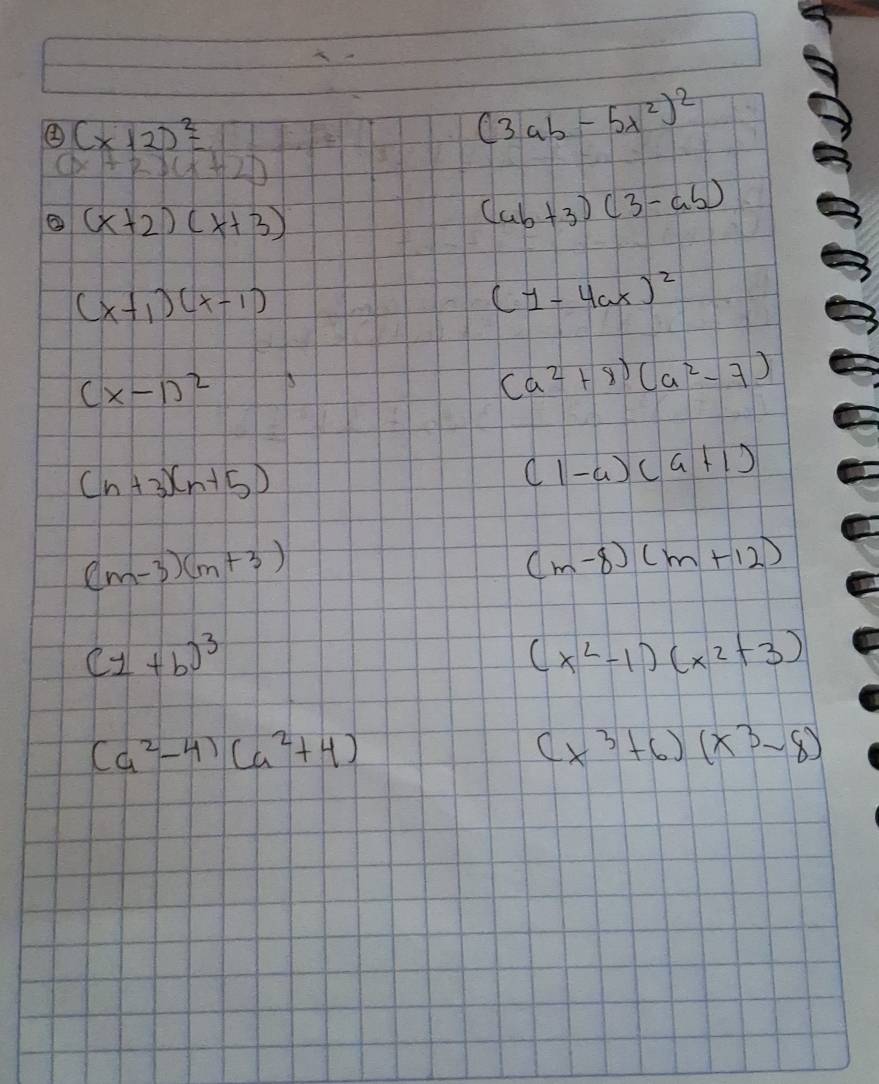 ① (x+2)² =
(x+2)(x+2)
② (x+2)(x+3)
(x+1)(x-1)
(x-1)²
(n+3)(n+5)
(m-3)(m+3)
(1+b)³
(a²-4)(a²+4)
(3ab-5x²)²
(ab+3)(3-ab)
(1-4ax)²
(a²+8)(a²-7)
(1-a)(a+1)
(m-8)(m+12)
(x²-1)(x²+3)
(x³+6)(x³-8)